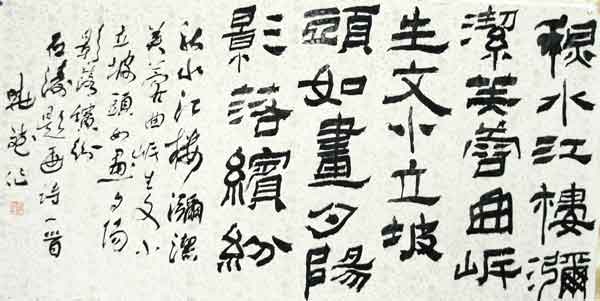 秋水江樓瀰
潔芙蓉曲岸
生文小立坡
頭如畫夕陽
影落繽紛
秋水江樓瀰潔
芙蓉曲岸生文小
立坡頭如畫夕陽
影落繽紛
石濤題画詩一首
作